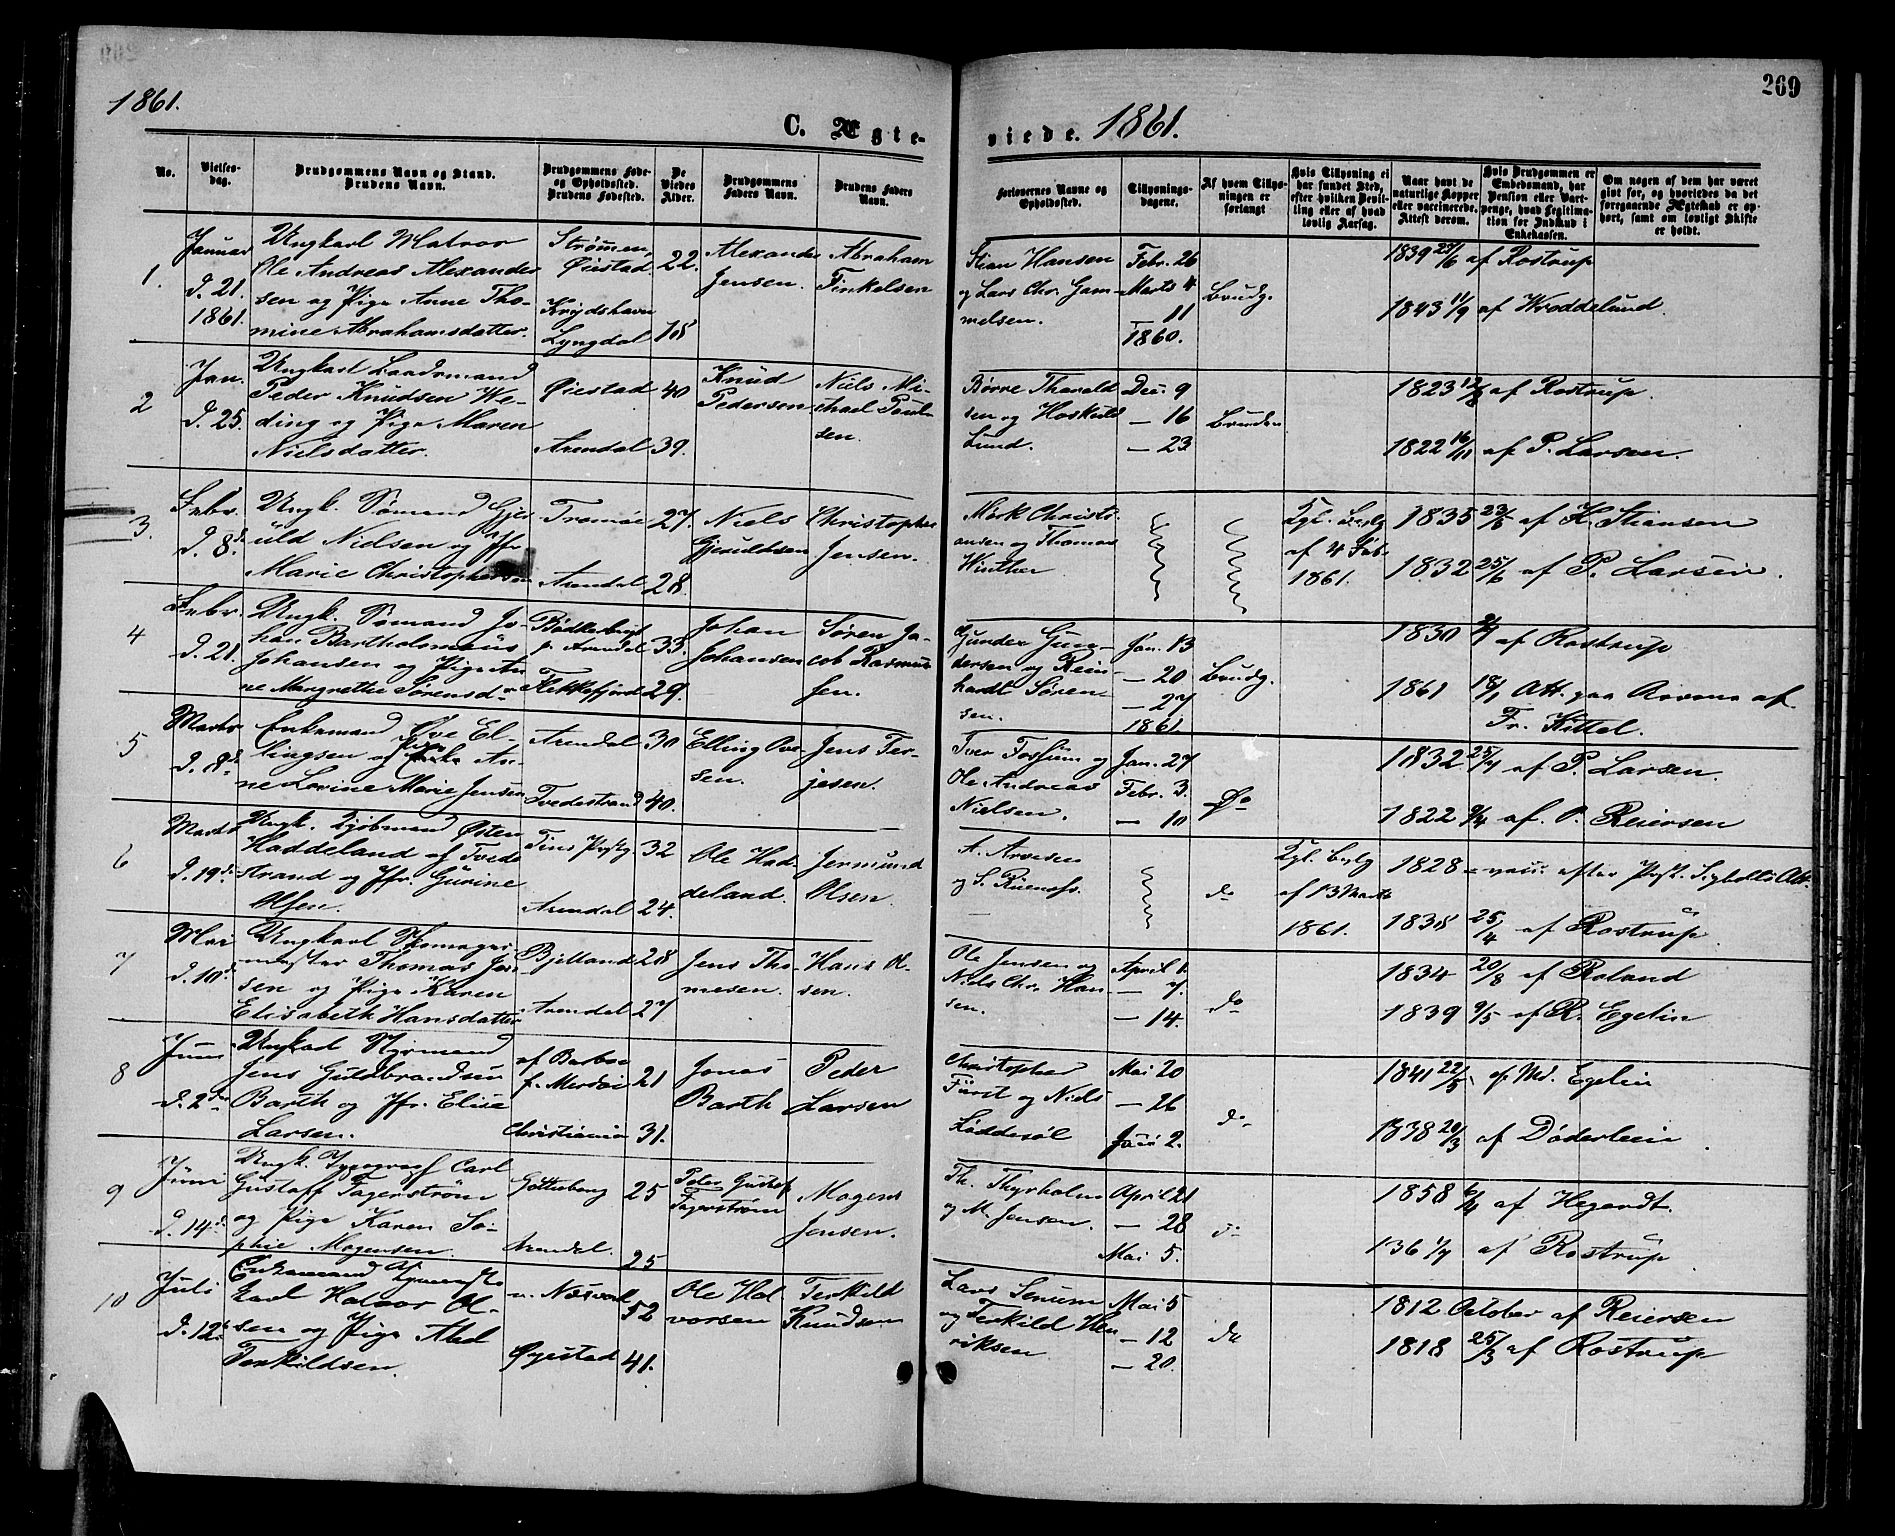 1861.
C. Ægte-
viede. 1861.
269
No.
Vielses-
dag.
Brudgommens Navn og Stand.
Brudens Navn.
Brudgommens Føde-
og Opholdssted.
Brudens Fødested.
De
Viedes
Alder.
Brudgommens
Faders Navn.
Brudens Faders
Navn.
Forlovernes Navne og
Opholdssted.
Tillysnings-
dagene.
Af hvem Tillys-
ningen er
forlangt
Hvis Tillysning ei
har fundet Sted,
efter hvilken Bevil-
ling eller af hvad
lovlig Aarsag.
Naar havt de
naturlige Kopper
eller vaccinerede.
Attest derom.
Hvis Brudgommen er
Embedsmand, har
Pension eller Vart-
penge, hvad Legitima-
tion for Indskud i
Enkekassen.
Om nogen af dem har været
gift før, og hvorledes da det
foregaaende Ægteskab er op-
hørt, samt om lovligt Skifte
er holdt.
1.
Januar
d. 21.
1861.
Ungkarl Matros
Ole Andreas Alexander
sen og Pige Anne Tho-
mine Abrahamsdatter.
Strømen,
Øiestad 22.
Lyngdal 18
Alexander
Jensen.
Abraham
Finkelsen
Stian Hansen
og Lars Chr. Gam-
melsen.
Febr. 26
Marts 4
11
1860.
Brudg.
1839 af Rostrup
1843 11/9 af Wroddelund.
2
Jan.
d. 25.
Ungkarl
Peder Knudsen We-
ding og Pige Maren
Nielsdatter.
Øiestad 40
Arendal 39.
Knud
Pedersen
Niels Mi-
chael Paul-
sen.
Børre Tharald
sen og
Lund.
Dec. 9
— 16
— 23
Bruden
1823 af Rostrup.
1822 16/11 af P. Larsen.
3.
Febr.
d. 8d.
Ungk. Sømand Gjer
uld Nielsen og Jfr
Marie Christophersen
Tromøe 27.
Arendal 28.
Niels
Gjeruldsen
Christopher
Jensen.
Mørk Christi-
ansen og Thomas
Winther
Kgl. Bevlg
af 4 Feb.
1861.
1835 23/5 af H. Stiansen
1832 25/6 af P. Larsen.
4
Febr.
d. 21.
Ungk. Sømand Jo-
han Bartholomæus
Johansen og Pige An-
ne Margrethe Sørensd.
p. Arendal 33.
Flekkefjord 29.
Johan
Johansen
Søren Ja-
cob Rasmus-
sen.
Gunder Gun-
dersen og Rein-
hardt Søren-
sen.
Jan. 13
— 20
— 27
1861.
Brudg.
1830 af Rostrup
1861 18/1 Att. paa Aarene af
Fr. Kittel.
5
Marts
d. 8d.
Enkemand Ove El-
lingsen og Pige An-
ne Lovine Marie Jensen
Arendal 30
Tvedestrand 40.
Elling Ove-
sen.
Jens Ter-
jesen.
Iver Fossum og
Ole Andreas
Nielsen.
Jan. 27
Febr. 3.
— 10
Do
1832 25/4 af P. Larsen.
1822 9/4 af O. Reiersen
6
Marts
d. 19de
Ungk. Kjøbmand Østen
Haddeland af Tvede
strand og Jfr. Gurine
Olsen.
Tins Prstg. 32
Arendal 24.
Ole Had
deland.
Jermund
Olsen.
A. Arvesen
og S.
do
Kgl. Bevlg
af 13 Marts
1861.
1828 – vacc. efter Prst. Att.
1838 25/4 af Rostrup.
7
Mai
d. 10d.
Ungkarl Skomager-
mester Thomas Jen-
sen og Pige Karen
Elisabeth Hansdatter
Bjelland 28
Arendal 27
Jens Tho-
mesen.
Hans Ol-
sen.
Ole Jensen og
Niels Chr. Han-
sen.
April 1.
— 7.
— 14.
do
1834 20/8 af Roland
1839 9/5 af R. Egelin
8
Juni
d. 2den
Ungkarl Styrmand
Jens Guldbrandsen
Barth og Jfr. Elise
Larsen.
af Barboe
f. Merdøe 21
Christiania 31.
Jonas
Barth
Peder
Larsen
Christopher
Fürst og Niels
Løddesøl
Mai 20
— 26
Juni 2.
do
1841 22/5 af Md. Egelin
1838 20/3 af Døderlein
9
Juni
d. 14d.
Ungk. Typograf Carl
Gustaff Fagerstrøm
og Pige Karen So-
phie Mogensen.
Gøtteborg 25
Arendal. 25
Peter Gustaf
Fagerstrøm
Mogens
Jensen.
Th. Thyrholm
og M. Jensen.
April 21
— 28
Mai 5.
do
1858 6/4 af Hegardt.
136 1/7 af Rostrup.
10
Juli
d. 12t.
Enkemand
karl Halvor Ol-
sen og Pige Abel
Terkildsen.
52
Øyestad 41.
Ole Hal
vorsen
Terkild
Knudsen
Lars Senum
og Terkild Hen
riksen.
Mai 5
— 12
— 20.
do
1812 October af Reiersen
1818 25/3 af Rostrup